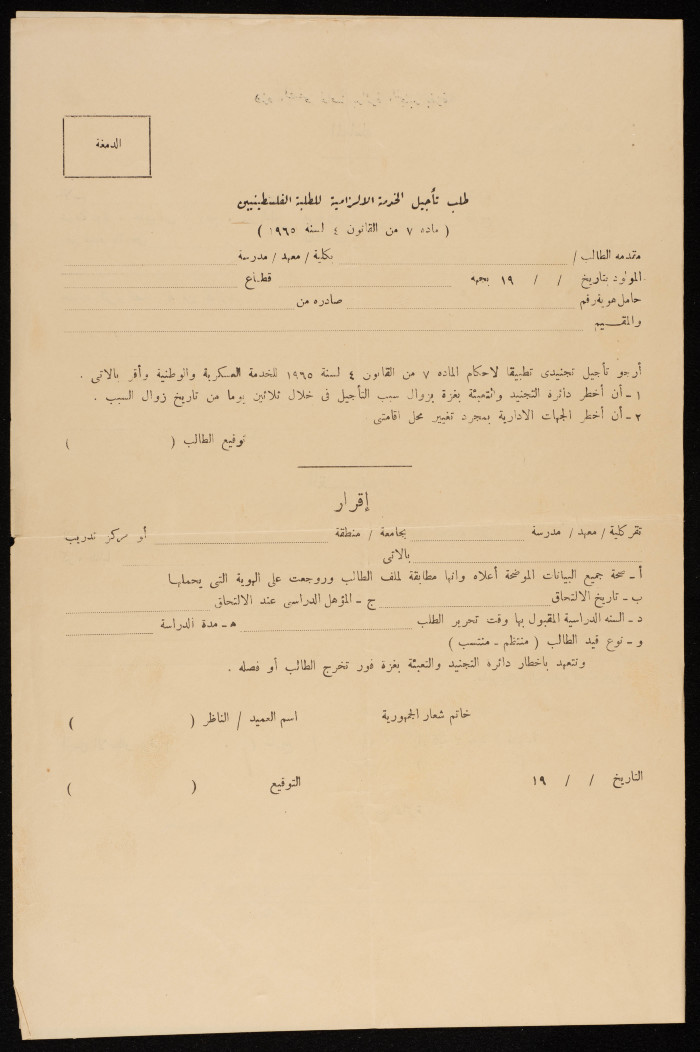 الدمغة
طلب تأجيل الخدمة الالزامية للطلبة الفلسطينيين
( ماده ٧ من القانون ٤ لسنة ١٩٦٥ )
مقدمه الطالب / بكلية / معهد / مدرسة
المولود بتاريخ / / ١٩ بجهه قطاع
حامل هوية رقم صادره من
والمقيم
أرجو تأجيل تجنيدى تطبيقا لاحكام الماده ٧ من القانون ٤ لسنة ١٩٦٥ للخدمة العسكرية والوطنية وأقر بالاتى .
١ - أن أخطر دائره التجنيد والتعبئة بغزة بزوال سبب التأجيل فى خلال ثلاثين يوما من تاريخ زوال السبب .
٢ - أن أخطر الجهات الادارية بمجرد تغيير محل اقامتى
توقيع الطالب ( )
إقرار
تقر كلية / معهد / مدرسة بجامعة / منطقة أو مركز تدريب
بالاتى
أ - صحة جميع البيانات الموضحة أعلاه وانها مطابقة لملف الطالب وروجعت على الهوية التى يحملها
ب - تاريخ الالتحاق ج - المؤهل الدراسى عند الالتحاق
د - السنه الدراسية المقبول بها وقت تحرير الطلب هـ - مدة الدراسة
و - نوع قيد الطالب ( منتظم - منتسب )
وتتعهد باخطار دائره التجنيد والتعبئة بغزة فور تخرج الطالب أو فصله .
خاتم شعار الجمهورية اسم العميد / الناظر ( )
التاريخ / / ١٩ التوقيع ( )